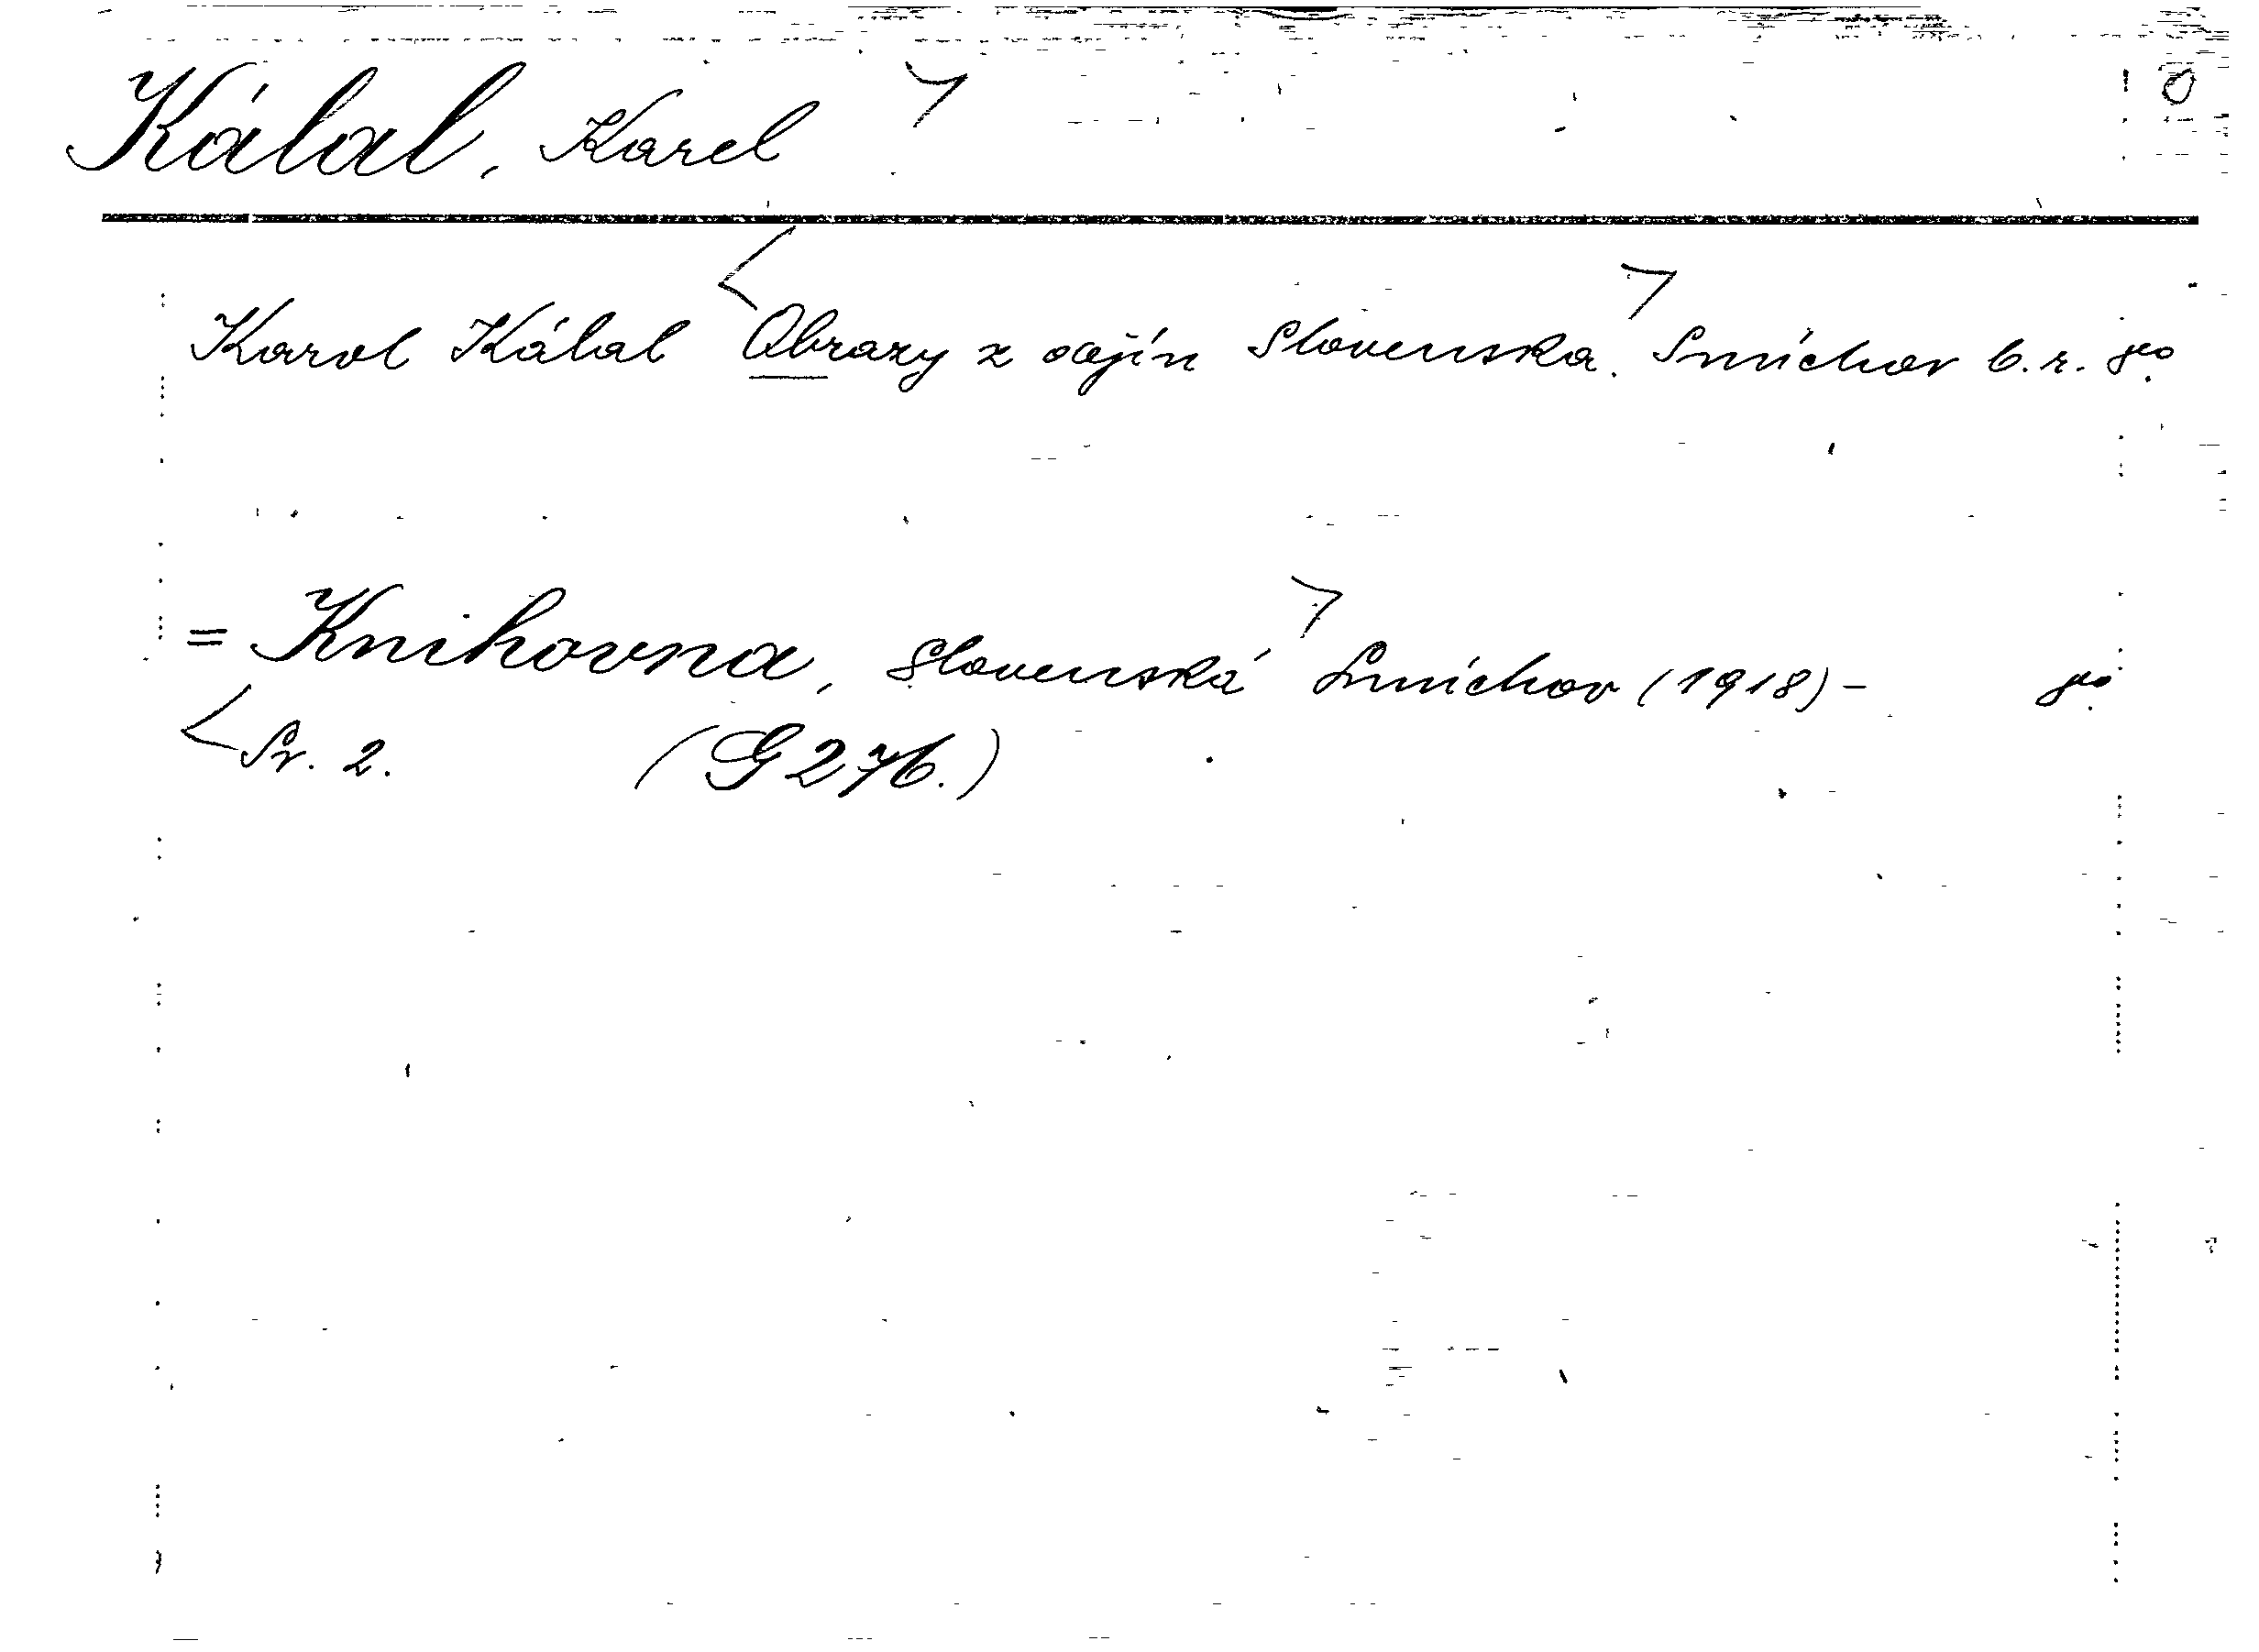 Kálal, Karel
Karol Kálal Obrazy z dejín Slovenska. Smíchov b.r. 8º.
= Knihovna, Slovenská Smíchov (1918) - 8º.
Sv. 2. (G 276.)